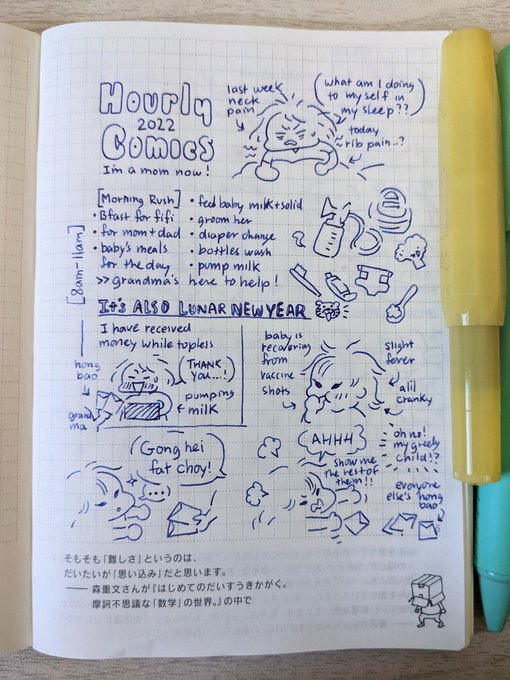 Hourly
2022
Comics
I'm a mom now!
last week
neck
pain
(what am I doing
to myself in
my sleep??)
today
~rib pain..?
[8am-11am]
[Morning Rush]
• Bfast for fifi
• for mom + dad
• baby's meals
for the day
• feed baby milk + solid
• groom her
• diaper change
• bottles wash
• pump milk
>> grandma's here to help!
It's ALSO LUNAR NEW YEAR
I have received
money while topless
hong
bao
grandma
(THANK
YOU...!)
pumping
milk
baby is
recovering
from
vaccine
shots
slight
fever
a lil
cranky
Gong hei
fat choy!
...
AHHH
show me
the rest of
them!!
oh no!
my greedy
child!?
everyone
else's hong
bao
そもそも「難しさ」というのは、
だいたいが「思い込み」だと思います。
── 森重文さんが『はじめてのだいすうきかがく。
摩訶不思議な「数学」の世界。』の中で